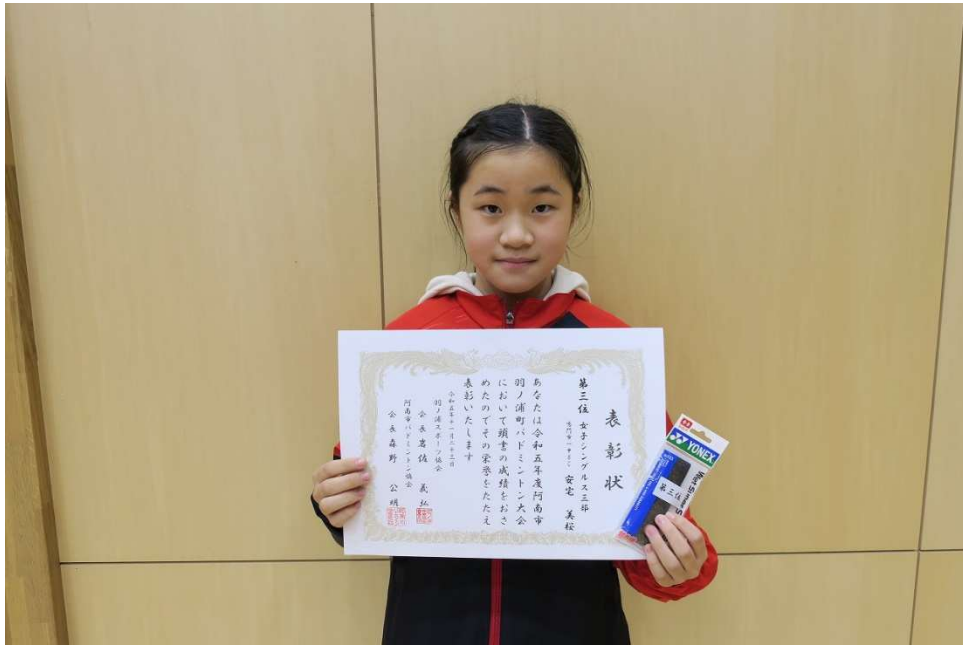 表彰状
第三位 女子シングルス三部
安宅 美桜
あなたは令和五年度阿南市
羽ノ浦町バドミントン大会
において頭書の成績をおさ
めたのでその栄誉をたたえ
表彰いたします
令和五年十一月二十三日
羽ノ浦スポーツ協会
会長 岩佐 義弘
阿南市バドミントン協会
会長 森野 公明
YONEX
第三位